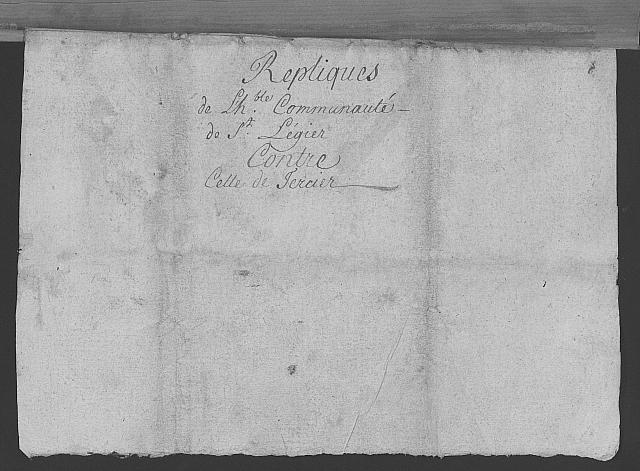 Repliques
de Lh.ble Communauté
de St. Légier
Contre
Celle de Jercier